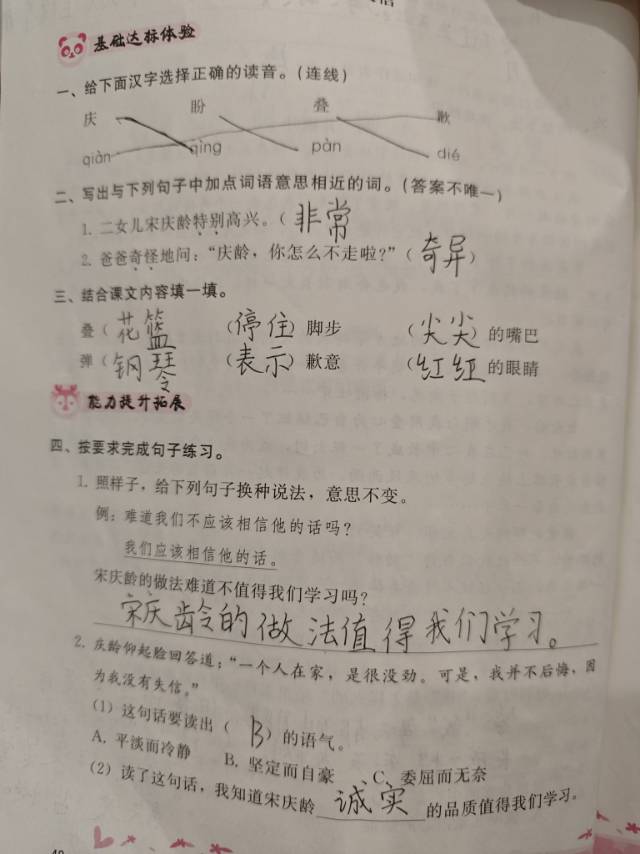 基础达标体验
一、给下面汉字选择正确的读音。(连线)
庆 盼 叠 歉
qiàn qìng pàn dié
二、写出与下列句子中加点词语意思相近的词。(答案不唯一)
1. 二女儿宋庆龄特别高兴。(非常
2. 爸爸奇怪地问：“庆龄，你怎么不走啦?”(奇异)
三、结合课文内容填一填。
叠(花篮 (停住)脚步 (尖尖)的嘴巴
弹(钢琴 (表示)歉意 (红红的眼睛
能力提升拓展
四、按要求完成句子练习。
1. 照样子，给下列句子换种说法，意思不变。
例：难道我们不应该相信他的话吗?
我们应该相信他的话。
宋庆龄的做法难道不值得我们学习吗?
宋庆龄的做法值得我们学习。
2. 庆龄仰起脸回答道：“一个人在家，是很没劲。可是，我并不后悔，因
为我没有失信。”
(1) 这句话要读出( B )的语气。
A. 平淡而冷静 B. 坚定而自豪 C. 委屈而无奈
(2) 读了这句话，我知道宋庆龄诚实的品质值得我们学习。